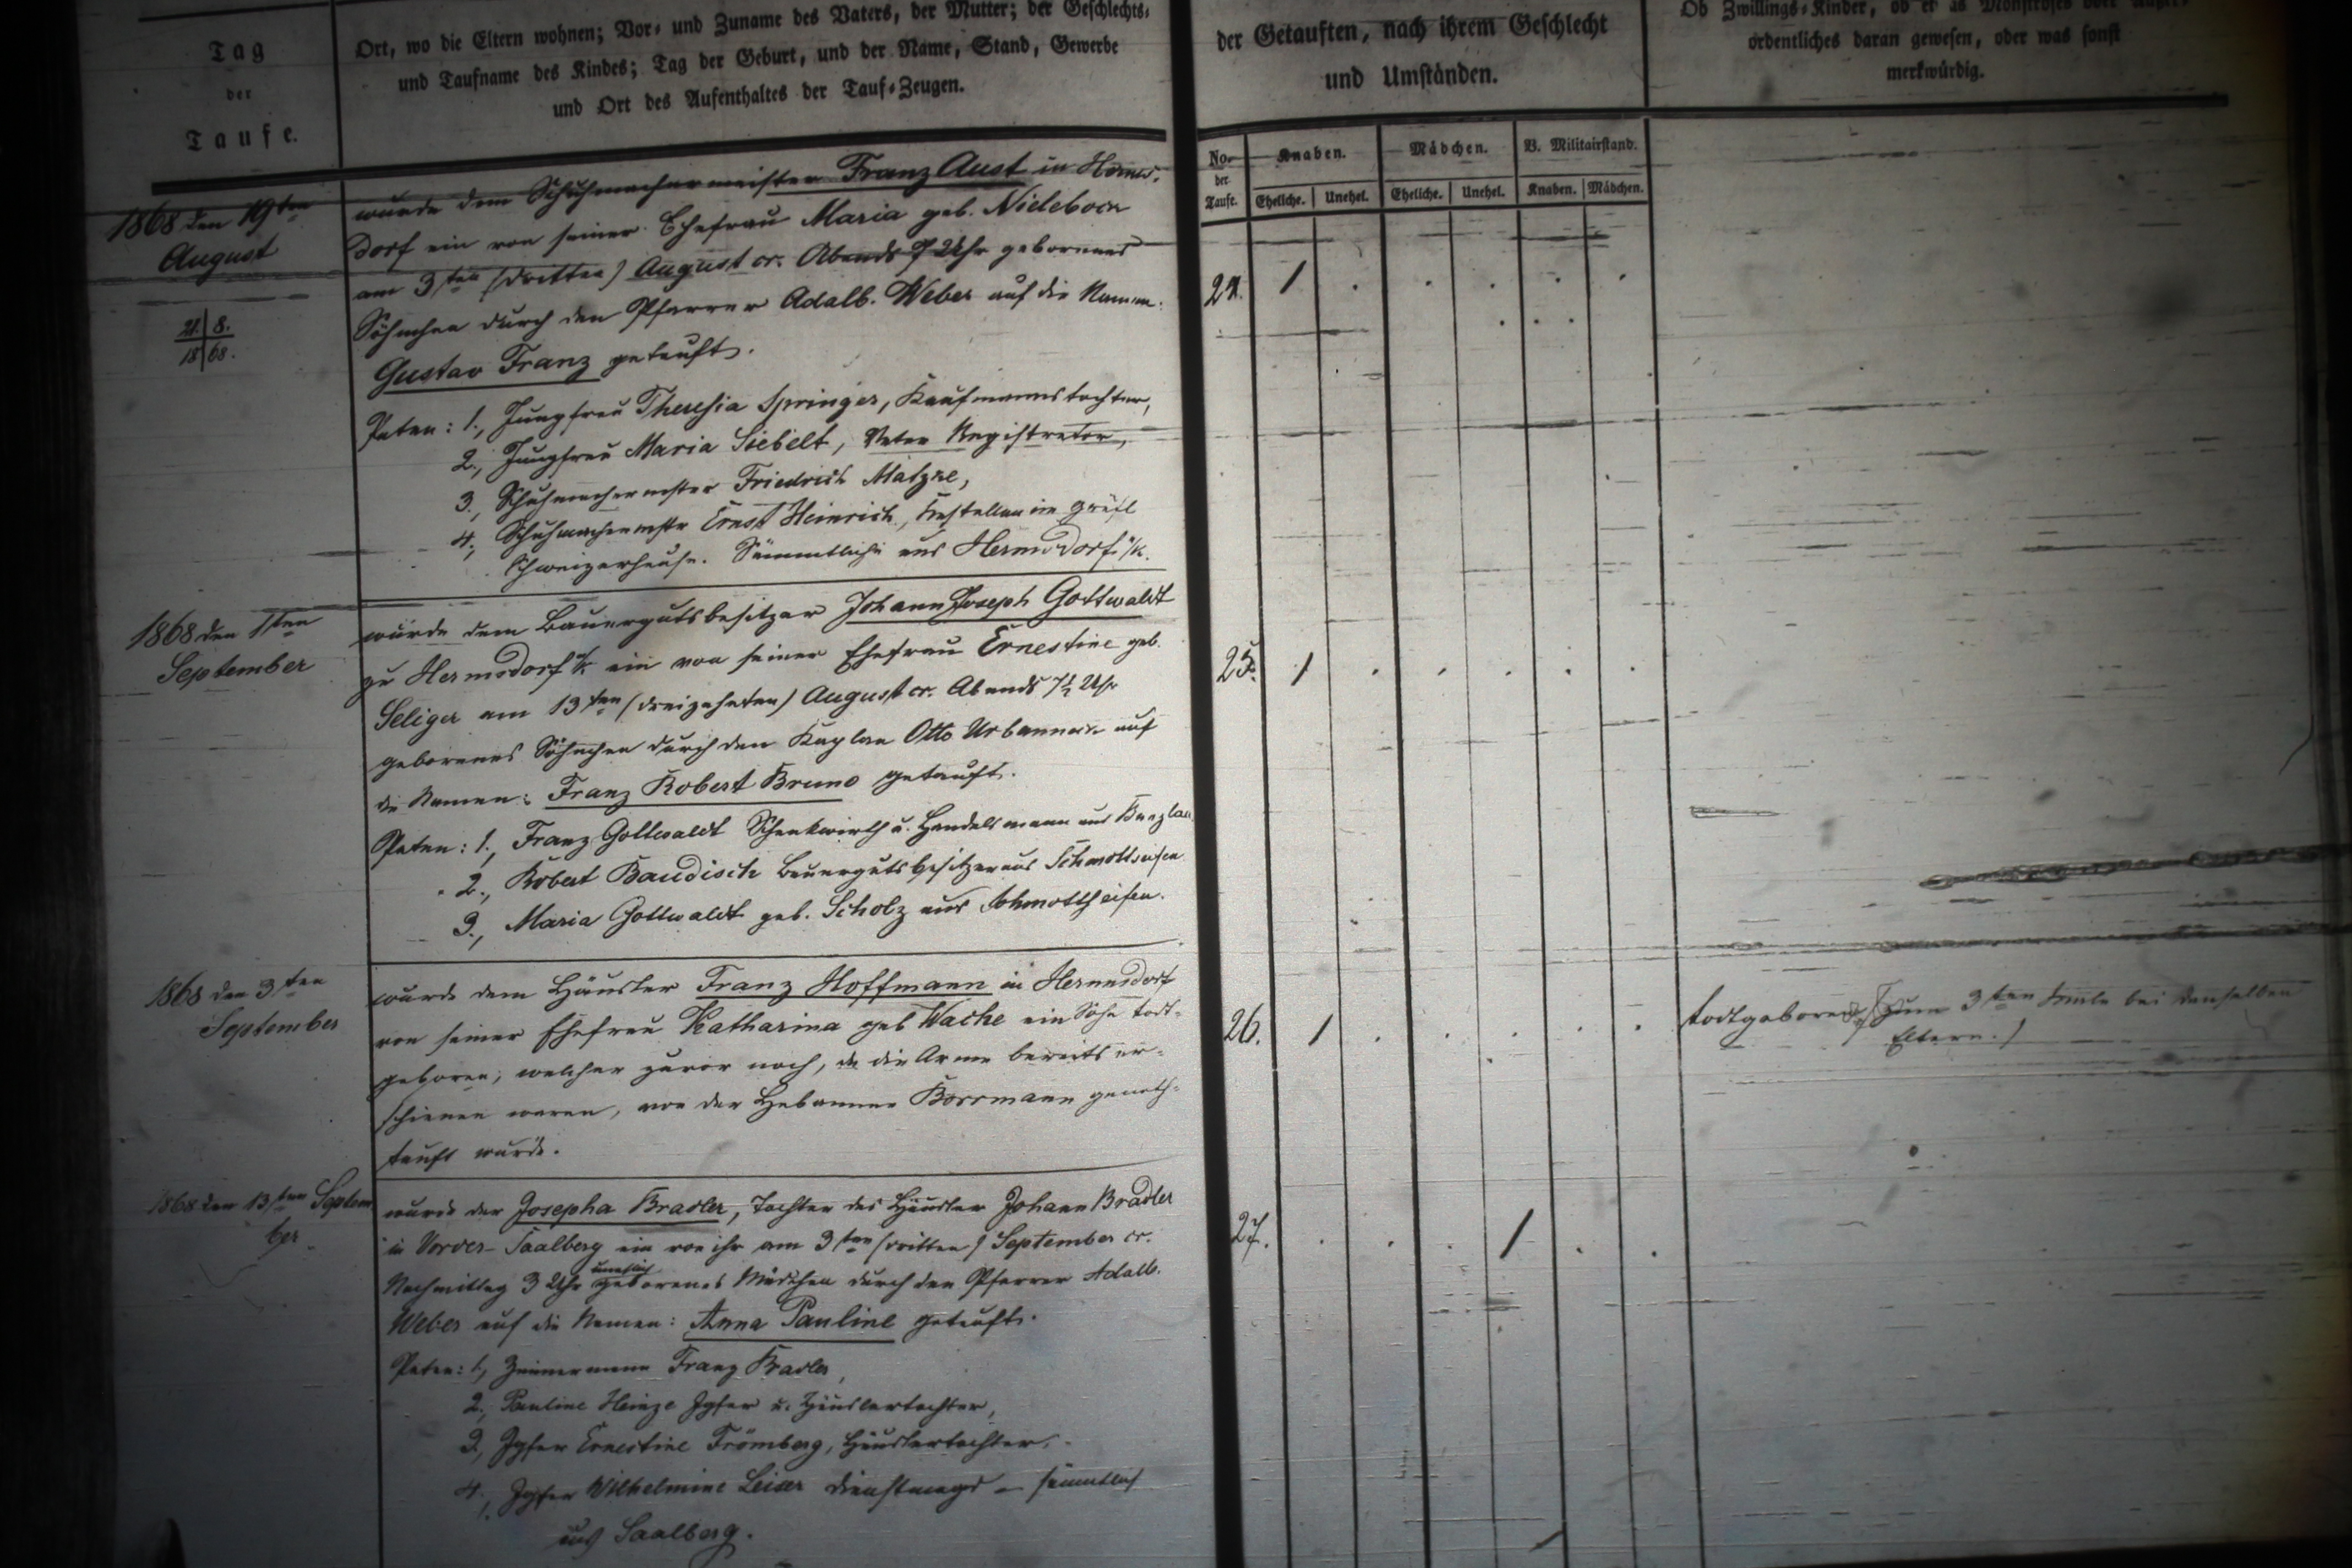 Tag
der
Taufe.
Ort, wo die Eltern wohnen; Vor- und Zuname des Vaters, der Mutter; der Geschlechts-
und Taufname des Kindes; Tag der Geburt, und der Name, Stand, Gewerbe
und Ort des Aufenthaltes der Tauf-Zeugen.
der Getauften, nach ihrem Geschlecht
und Umständen.
Ob Zwillings-Kinder, ob etwas Monströses oder Außer-
ordentliches daran gewesen, oder was sonst
merkwürdig.
No.
der
Taufe.
Knaben. Mädchen. V. Militairstand.
Eheliche. Unehel. Eheliche. Unehel. Knaben. Mädchen.
1868 den 19ten
August
21. 8.
18 68.
wurde dem Schuhmachermeister Franz Aust in Herms-
dorf ein von seiner Ehefrau Maria geb. Nieleboc
am 3ten (dritten) August cr. Abends 7 Uhr gebornes
Söhnchen durch den Pfarrer Adalb. Weber auf die Namen:
Gustav Franz getauft.
Paten: 1., Jungfrau Theresia Springer, Kaufmannstochter,
2., Jungfrau Maria Siebelt, Vater Registrator,
3., Schuhmachermster Friedrich Matzke,
4., Schuhmachermstr Ernst Heinrich, Kastellan im gräfl
Schweizerhause. Sämmtliche aus Hermsdorf u/K.
24. 1
1868 den 1ten
September
wurde dem Bauergutsbesitzer Johann Joseph Gottwaldt
zu Hermsdorf u/K ein von seiner Ehefrau Ernestine geb.
Seliger am 13ten (dreizehnten) August cr. Abends 7½ Uhr
geborenes Söhnchen durch den Kaplan Otto Urbanneck auf
die Namen: Franz Robert Bruno getauft.
Paten: 1., Franz Gottwaldt Schenkwirth u. Handelsmann aus Bunzlau
2., Robert Baudisch Bauergutsbesitzer aus Schmottseifen
3., Maria Gottwaldt geb. Scholz aus Schmottseifen.
25. 1
1868 den 3ten
September
wurde dem Häusler Franz Hoffmann in Hermsdorf
von seiner Ehefrau Katharina geb Wache ein Sohn todt-
geboren, welcher zuvor noch, da die Arme bereits er-
schienen waren, von der Hebamme Borrmann genoth-
tauft wurde.
26. 1
todtgeboren (Zum 3ten Male bei denselben
Eltern.)
1868 den 13ten Septem
ber
wurde der Josepha Bradler, Tochter des Häusler Johann Bradler
in Vorder-Saalberg ein von ihr am 3ten (dritten) September cr.
Nachmittag 3 Uhr unehlich geborenes Mädchen durch den Pfarrer Adalb.
Weber auf die Namen: Anna Pauline getauft.
Paten: 1., Zimmermann Franz Bradler,
2., Pauline Heinze Jgfer u. Häuslertochter,
3., Jgfer Ernestine Frömberg, Häuslertochter,
4., Jgfer Wilhelmine Leiser Dienstmagd – sämmtlich
aus Saalberg.
27. 1